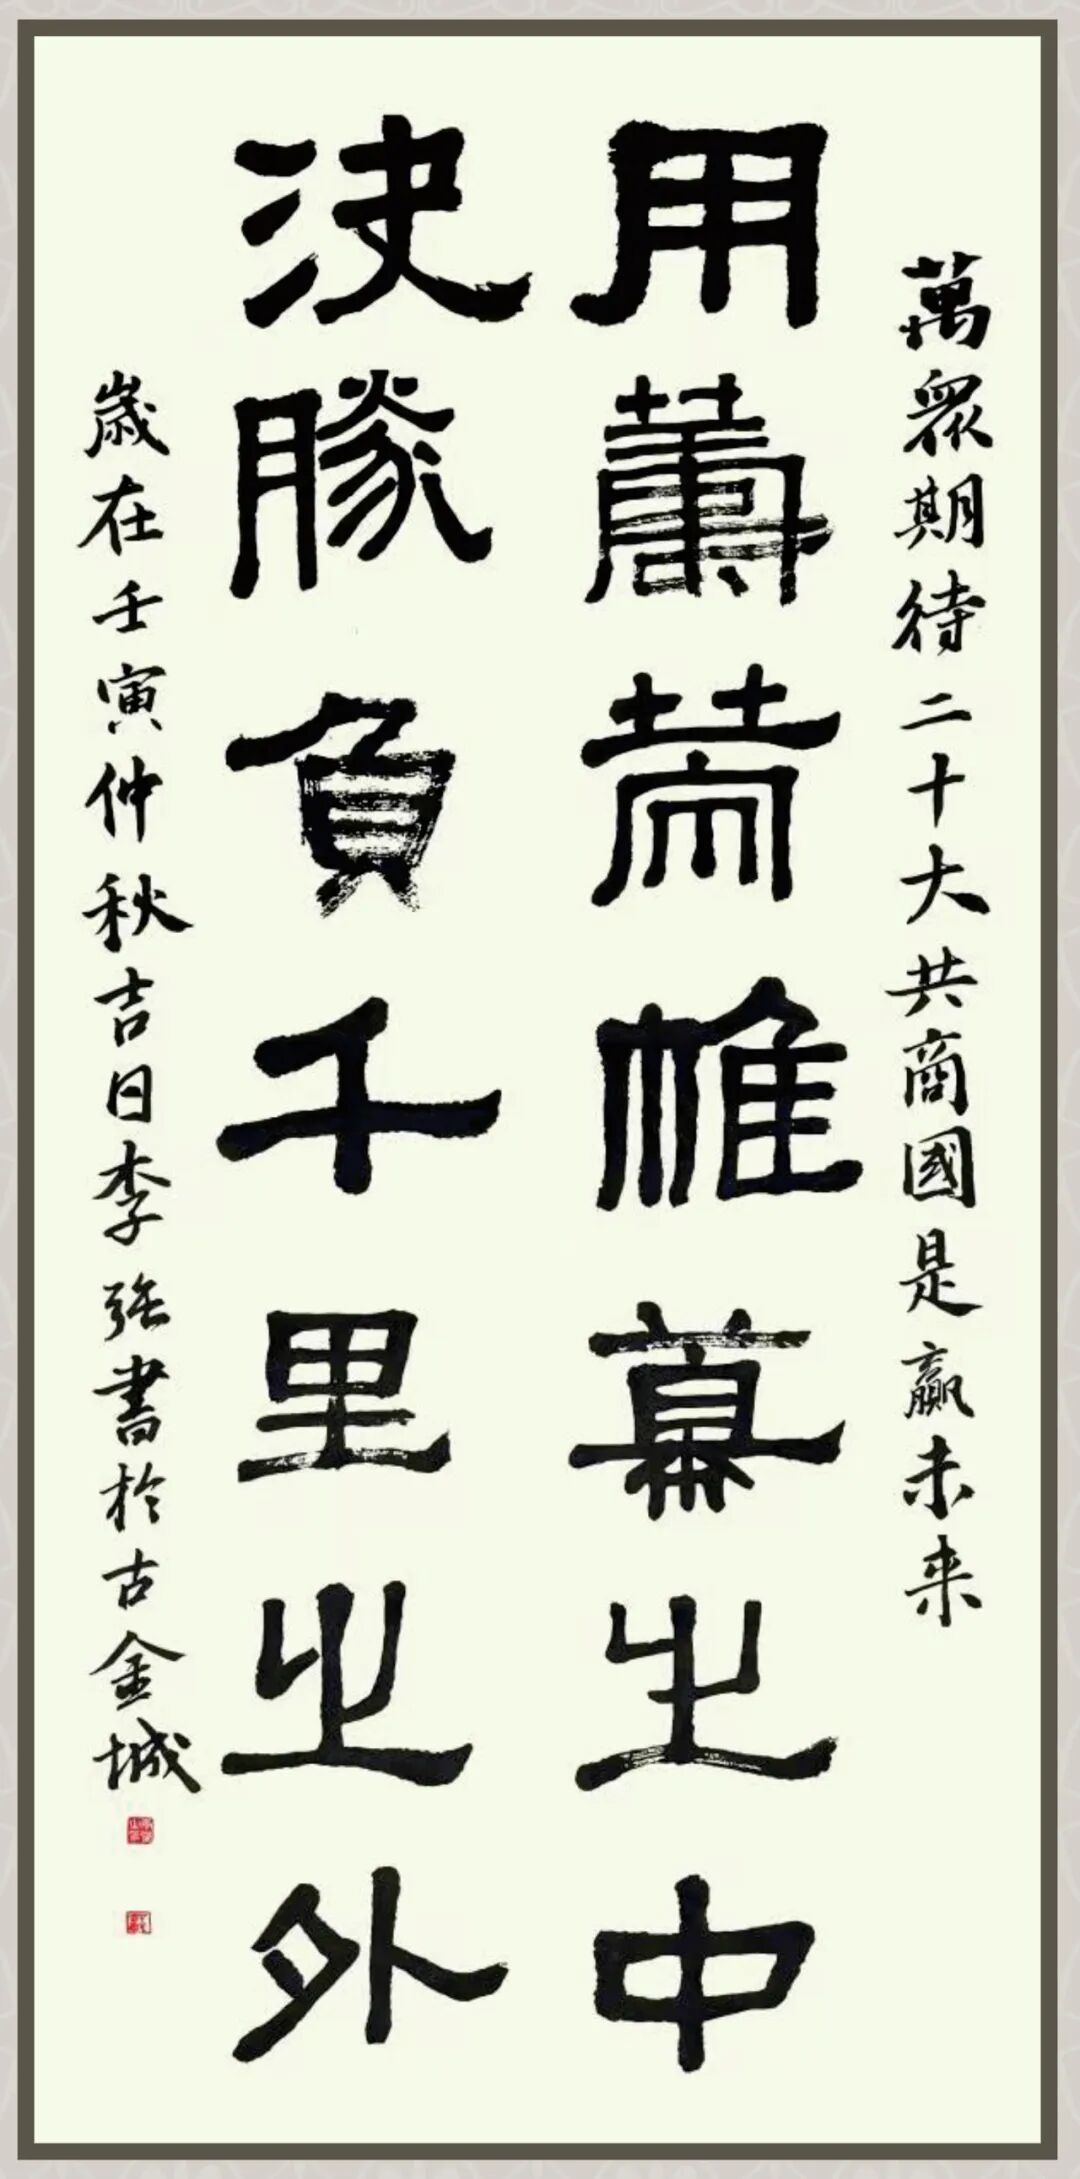 萬眾期待二十大共商國是贏未來
用籌策帷幕之中
決勝負千里之外
歲在壬寅仲秋吉日李強書於古金城